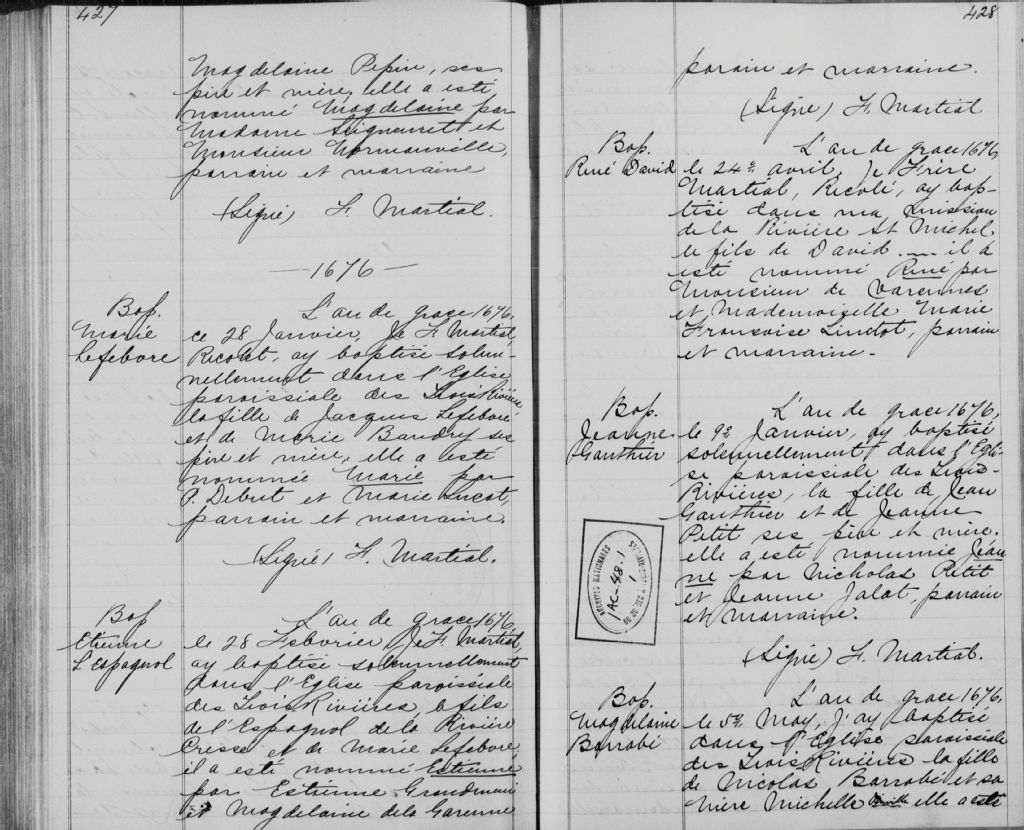 427
Magdelaine Pepin, ses
pire et mire, elle a esté
nommé Magdelaine par
Madame Seigneurett et
Monsieur Normanville,
parrain et marraine
(Signé) F. Martial.
—1676—
Bap.
Marie
Lefebvre
L'an de grace 1676,
ce 28 Janvier, Je F. Martial,
Ricolet, ay baptisé solem-
nellement dans l'Eglise
paroissiale des Trois Rivières,
la fille de Jacques Lefebvre
et de Marie Baudry ses
pire et mère, elle a esté
nommée Marie par
P. Debut et Marie Lucot,
parrain et marraine.
(Signé) F. Martial.
Bap
Etienne
L'Espagnol
L'an de grace 1676,
le 28 Febvrier Je F. Martial,
ay baptisé solemnellement
dans l'Eglise paroissiale
des Trois Rivières, le fils
de l'Espagnol de la Rivière
Cresse et de Marie Lefebvre
il a esté nommé Estienne
par Estienne
et Magdelaine de la Garenne
428
parain et marraine.
(Signé) F. Martial
Bap.
René David
L'an de grace 1676,
le 24e avril, Je Frère
Martial, Ricolé, ay bap-
tisé dans ma mission
de la Rivière St Michel
le fils de David .... il a
esté nommé René par
Monsieur de Varennes
et Mademoiselle Marie
Francoise Linctot, parrain
et marraine.
Bap.
Jeanne
Gauthier
L'an de grace 1676,
le 9e Janvier, ay baptisé
solemnellement dans l'Egli-
se paroissiale des Trois-
Rivières, la fille de Jean
Gauthier et de Jeanne
Petit ses père et mère.
elle a esté nommée Jean
ne par Nicholas Petit
et Jeanne Jalot, parrain
et marraine.
(Signé) F. Martial.
ARCHIVES NATIONALES
AC-48.1
1
Bap.
Magdelaine
Barrabé
L'an de grace 1676,
le 5e May, J'ay baptisé
dans l'Eglise paroissiale
des Trois Rivières la fille
de Nicolas Barrabé et sa
mère Michelle elle a esté